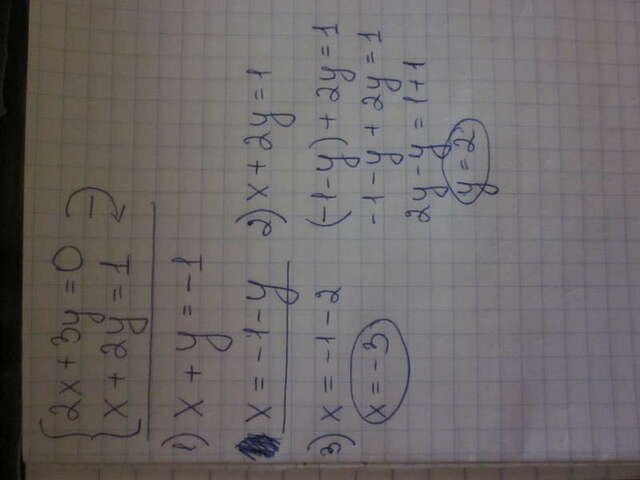 2x + 3y = 0
x + 2y = 1
1) x + y = -1
x = -1 - y
2) x + 2y = 1
(-1 - y) + 2y = 1
-1 - y + 2y = 1
2y - y = 1 + 1
y = 2
3) x = -1 - 2
x = -3